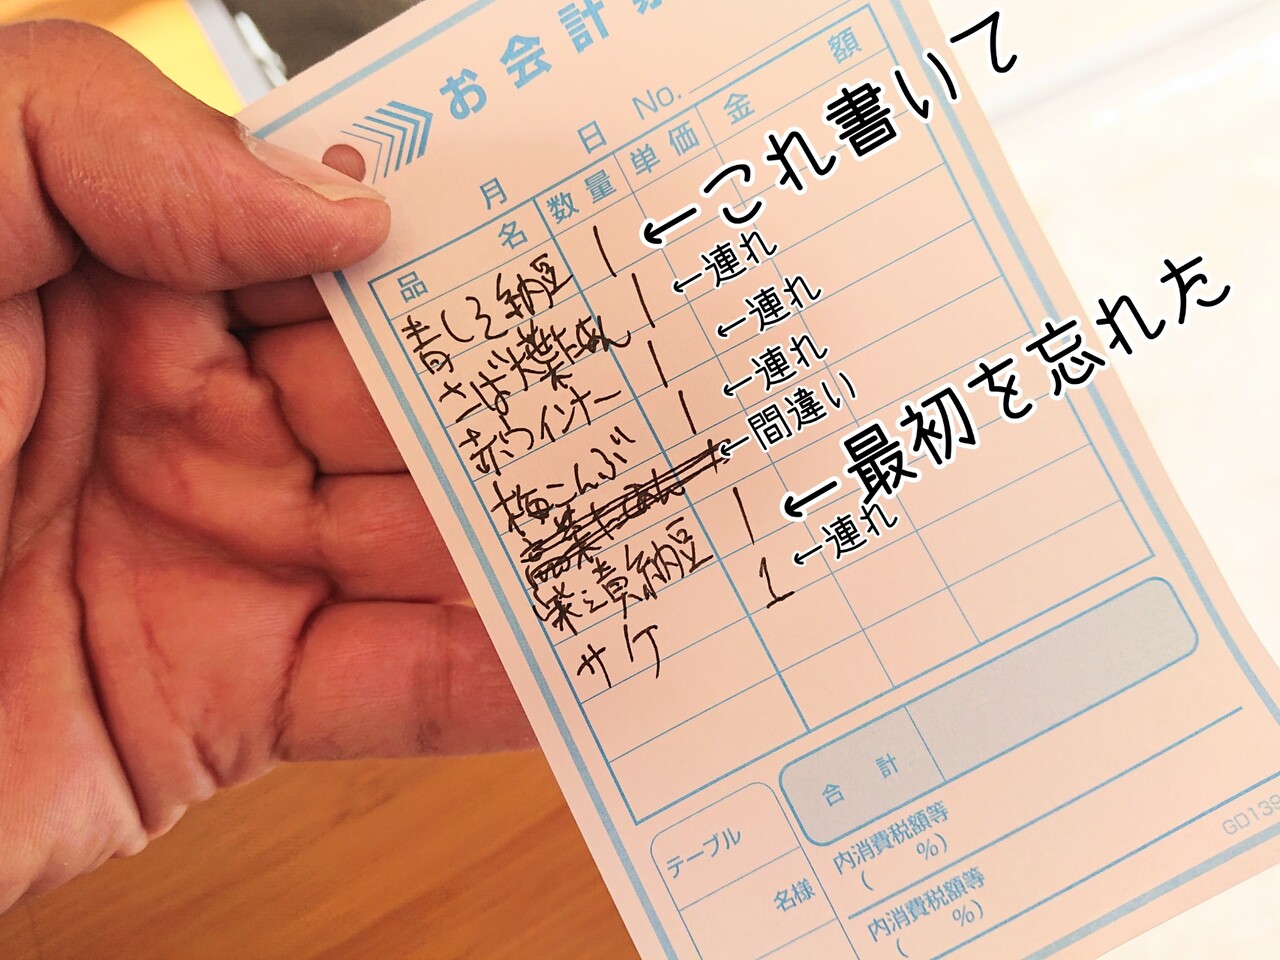 お会計
No.
月 日
品名 数量 単価 金額
青しそ納豆 1
←これ書いて
さば大葉たぬん 1
←連れ
赤ウインナー 1
←連れ
梅こんぶ 1
←連れ
←間違い
柴漬納豆 1
←最初を忘れた
サケ 1
←連れ
合計
テーブル
名様
内消費税額等
( %)
内消費税額等
( %)